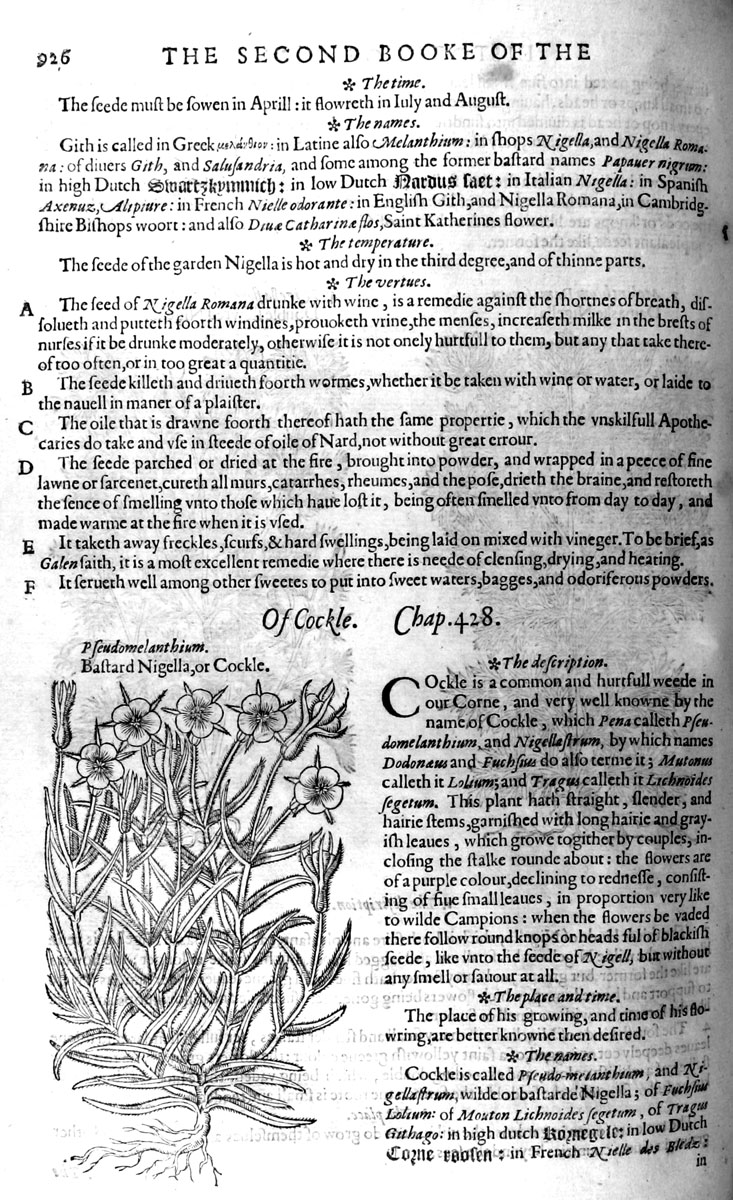 926 THE SECOND BOOKE OF THE
✲ The time.
The ſeede muſt be ſowen in Aprill: it flowreth in Iuly and Auguſt.
✲ The names.
Gith is called in Greek μελάνθιον: in Latine alſo Melanthium: in ſhops Nigella, and Nigella Roma-
na: of diuers Gith, and Saluſandria, and ſome among the former baſtard names Papauer nigrum:
in high Dutch Swartzkymmich: in low Dutch Nardus ſaet: in Italian Nigella: in Spaniſh
Axenuz, Alipiure: in French Nielle odorante: in Engliſh Gith, and Nigella Romana, in Cambridg-
ſhire Biſhops woort: and alſo Diuæ Catharinæ flos, Saint Katherines flower.
✲ The temperature.
The ſeede of the garden Nigella is hot and dry in the third degree, and of thinne parts.
✲ The vertues.
A The ſeed of Nigella Romana drunke with wine, is a remedie againſt the ſhortnes of breath, diſ-
ſolueth and putteth foorth windines, prouoketh vrine, the menſes, increaſeth milke in the breſts of
nurſes if it be drunke moderately, otherwiſe it is not onely hurtfull to them, but any that take there-
of too often, or in too great a quantitie.
B The ſeede killeth and driueth foorth wormes, whether it be taken with wine or water, or laide to
the nauell in maner of a plaiſter.
C The oile that is drawne foorth thereof hath the ſame propertie, which the vnskilfull Apothe-
caries do take and vſe in ſteede of oile of Nard, not without great errour.
D The ſeede parched or dried at the fire, brought into powder, and wrapped in a peece of fine
lawne or ſarcenet, cureth all murs, catarrhes, rheumes, and the poſe, drieth the braine, and reſtoreth
the ſence of ſmelling vnto thoſe which haue loſt it, being often ſmelled vnto from day to day, and
made warme at the fire when it is vſed.
E It taketh away freckles, ſcurfs, & hard ſwellings, being laid on mixed with vineger. To be brief, as
Galen ſaith, it is a moſt excellent remedie where there is neede of clenſing, drying, and heating.
F It ſerueth well among other ſweetes to put into ſweet waters, bagges, and odoriferous powders.
Of Cockle. Chap. 428.
Pſeudomelanthium.
Baſtard Nigella, or Cockle.
✲ The deſcription.
COckle is a common and hurtfull weede in
our Corne, and very well knowne by the
name of Cockle, which Pena calleth Pſeu-
domelanthium, and Nigellaſtrum, by which names
Dodonæus and Fuchſius do alſo terme it; Mutonus
calleth it Lolium; and Tragus calleth it Lichnoides
ſegetum. This plant hath ſtraight, ſlender, and
hairie ſtems, garniſhed with long hairie and gray-
iſh leaues, which growe togither by couples, in-
cloſing the ſtalke rounde about: the flowers are
of a purple colour, declining to redneſſe, conſiſt-
ing of fiue ſmall leaues, in proportion very like
to wilde Campions: when the flowers be vaded
there follow round knops or heads ful of blackiſh
ſeede, like vnto the ſeede of Nigell, but without
any ſmell or ſauour at all.
✲ The place and time.
The place of his growing, and time of his flo-
wring, are better knowne then deſired.
✲ The names.
Cockle is called Pſeudo-melanthium, and Ni-
gellaſtrum, wilde or baſtarde Nigella; of Fuchſius
Lolium: of Mouton Lichnoides ſegetum, of Tragus
Githago: in high dutch Kornegele: in low Dutch
Corne rooſen: in French Nielle des Bledz:
in